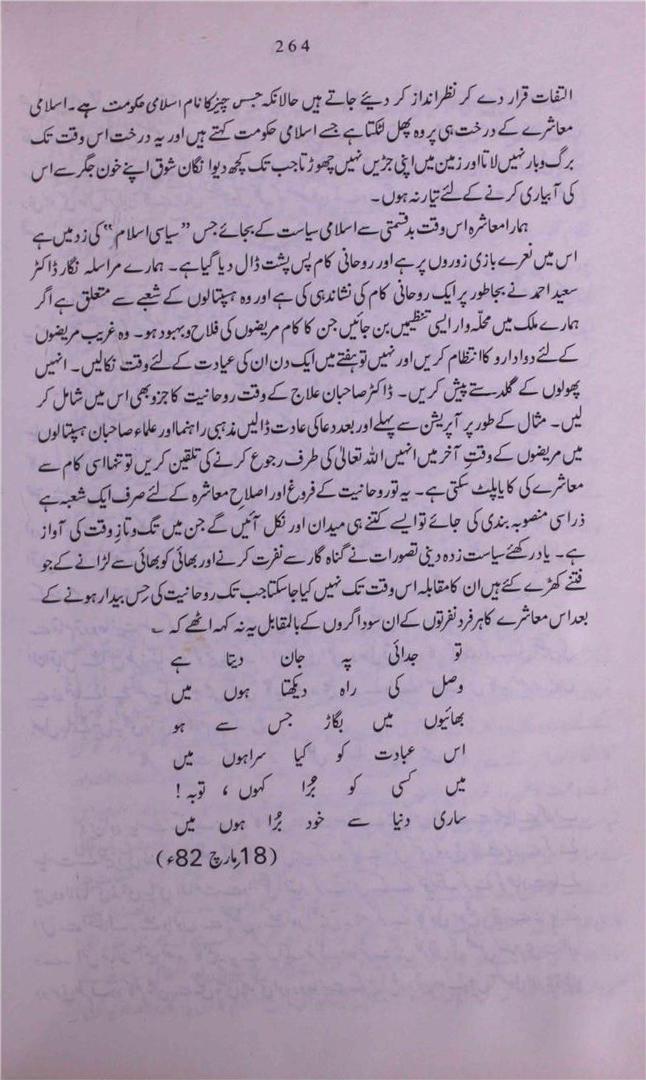 264
التفات قرار دے کر نظر انداز کر دیئے جاتے ہیں حالانکہ جس چیز کا نام اسلامی حکومت ہے۔ اسلامی
معاشرے کے درخت ہی پر وہ پھل لٹکتا ہے جسے اسلامی حکومت کہتے ہیں اور یہ درخت اس وقت تک
برگ و بار نہیں لاتا اور زمین میں اپنی جڑیں نہیں چھوڑتا جب تک کچھ دیوانگان شوق اپنے خون جگر سے اس
کی آبیاری کرنے کے لئے تیار نہ ہوں۔
ہمارا معاشرہ اس وقت بدقسمتی سے اسلامی سیاست کے بجائے جس ”سیاسی اسلام“ کی زد میں ہے
اس میں نعرے بازی زوروں پر ہے اور روحانی کام پس پشت ڈال دیا گیا ہے۔ ہمارے مراسلہ نگار ڈاکٹر
سعید احمد نے بجا طور پر ایک روحانی کام کی نشاندہی کی ہے اور وہ ہسپتالوں کے شعبے سے متعلق ہے اگر
ہمارے ملک میں محلّہ وار ایسی تنظیمیں بن جائیں جن کا کام مریضوں کی فلاح و بہبود ہو۔ وہ غریب مریضوں
کے لئے دوا دارو کا انتظام کریں اور نہیں تو ہفتے میں ایک دن ان کی عیادت کے لئے وقت نکالیں۔ انہیں
پھولوں کے گلدستے پیش کریں۔ ڈاکٹر صاحبان علاج کے وقت روحانیت کا جزو بھی اس میں شامل کر
لیں۔ مثال کے طور پر آپریشن سے پہلے اور بعد دعا کی عادت ڈالیں مذہبی راہنما اور علماء صاحبان ہسپتالوں
میں مریضوں کے وقتِ آخر میں انہیں اللہ تعالیٰ کی طرف رجوع کرنے کی تلقین کریں تو تنہا اسی کام سے
معاشرے کی کایا پلٹ سکتی ہے۔ یہ تو روحانیت کے فروغ اور اصلاحِ معاشرہ کے لئے صرف ایک شعبہ ہے
ذرا سی منصوبہ بندی کی جائے تو ایسے کتنے ہی میدان اور نکل آئیں گے جن میں تگ و تازِ وقت کی آواز
ہے۔ یاد رکھئے سیاست زدہ دینی تصورات نے گناہ گار سے نفرت کرنے اور بھائی کو بھائی سے لڑانے کے جو
فتنے کھڑے کئے ہیں ان کا مقابلہ اس وقت تک نہیں کیا جا سکتا جب تک روحانیت کی حِس بیدار ہونے کے
بعد اس معاشرے کا ہر فرد نفرتوں کے ان سوداگروں کے بالمقابل یہ نہ کہہ اٹھے کہ ۔
تو جدائی پہ جان دیتا ہے
وصل کی راہ دیکھتا ہوں میں
بھائیوں میں بگاڑ جس سے ہو
اس عبادت کو کیا سراہوں میں
میں کسی کو بُرا کہوں ، توبہ !
ساری دنیا سے خود بُرا ہوں میں
(18 مارچ 82ء)